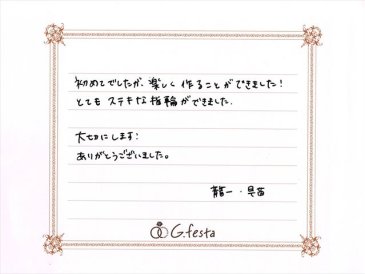 初めてでしたが、楽しく作ることができました!
とてもステキな指輪ができました.
大切にします!
ありがとうございました。
龍一・早苗
G.festa